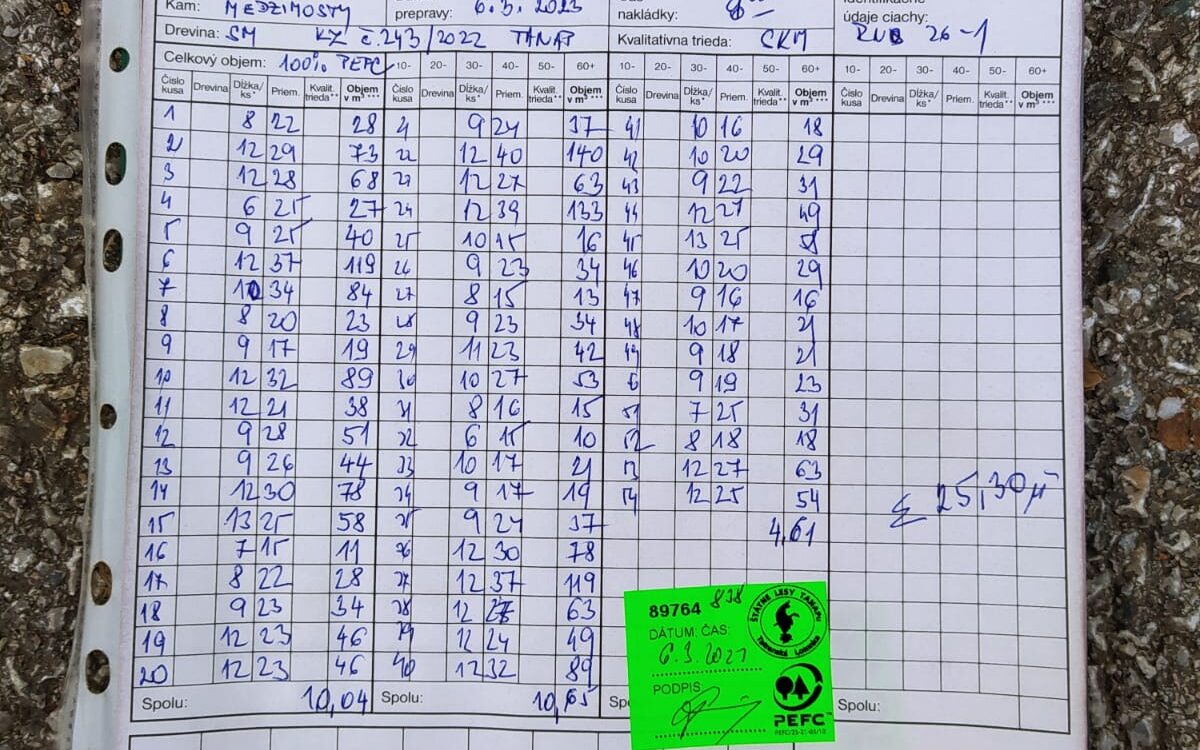 Kam: MEDZIMOSTY prepravy: 6.3. 2023 nakládky: údaje ciachy:
Drevina: SM KZ č.243/2022 TANAP Kvalitatívna trieda: CKM RUB 26-1
Celkový objem: 100% PEFC 10- 20- 30- 40- 50- 60+ 10- 20- 30- 40- 50- 60+ 10- 20- 30- 40- 50- 60+
Číslo kusa Drevina Dĺžka/ks* Priem. Kvalit. trieda** Objem v m³*** Číslo kusa Drevina Dĺžka/ks* Priem. Kvalit. trieda** Objem v m³*** Číslo kusa Drevina Dĺžka/ks* Priem. Kvalit. trieda** Objem v m³*** Číslo kusa Drevina Dĺžka/ks* Priem. Kvalit. trieda** Objem v m³***
1 8 22 28 21 9 24 37 41 10 16 18
2 12 29 73 22 12 40 140 42 10 20 29
3 12 28 68 23 12 27 63 43 9 22 31
4 6 25 27 24 12 39 133 44 12 27 49
5 9 25 40 25 10 15 16 45 13 25 58
6 12 37 119 26 9 23 34 46 10 20 29
7 10 34 84 27 8 15 13 47 9 16 16
8 8 20 23 28 9 23 34 48 10 17 21
9 9 17 19 29 11 23 42 49 9 18 21
10 12 32 89 30 10 27 53 9 19 23
11 12 21 38 31 8 16 15 51 7 25 31
12 9 28 51 32 6 15 10 52 8 18 18
13 9 26 44 33 10 17 21 53 12 27 63
14 12 30 78 34 9 17 19 54 12 25 54
15 13 25 58 35 9 24 37 4,61
16 7 15 11 36 12 30 78
17 8 22 28 37 12 37 119
18 9 23 34 38 12 27 63
19 12 23 46 39 12 24 49
20 12 23 46 40 12 32 89
Σ 25,30
Spolu: 10,04 Spolu: 10,65 Sp Spolu:
89764 838
ŠTÁTNE LESY TANAPU
Tatranská Lomnica
DÁTUM, ČAS:
6.3.2023
PODPIS:
PEFC™
PEFC/23-21-05/10